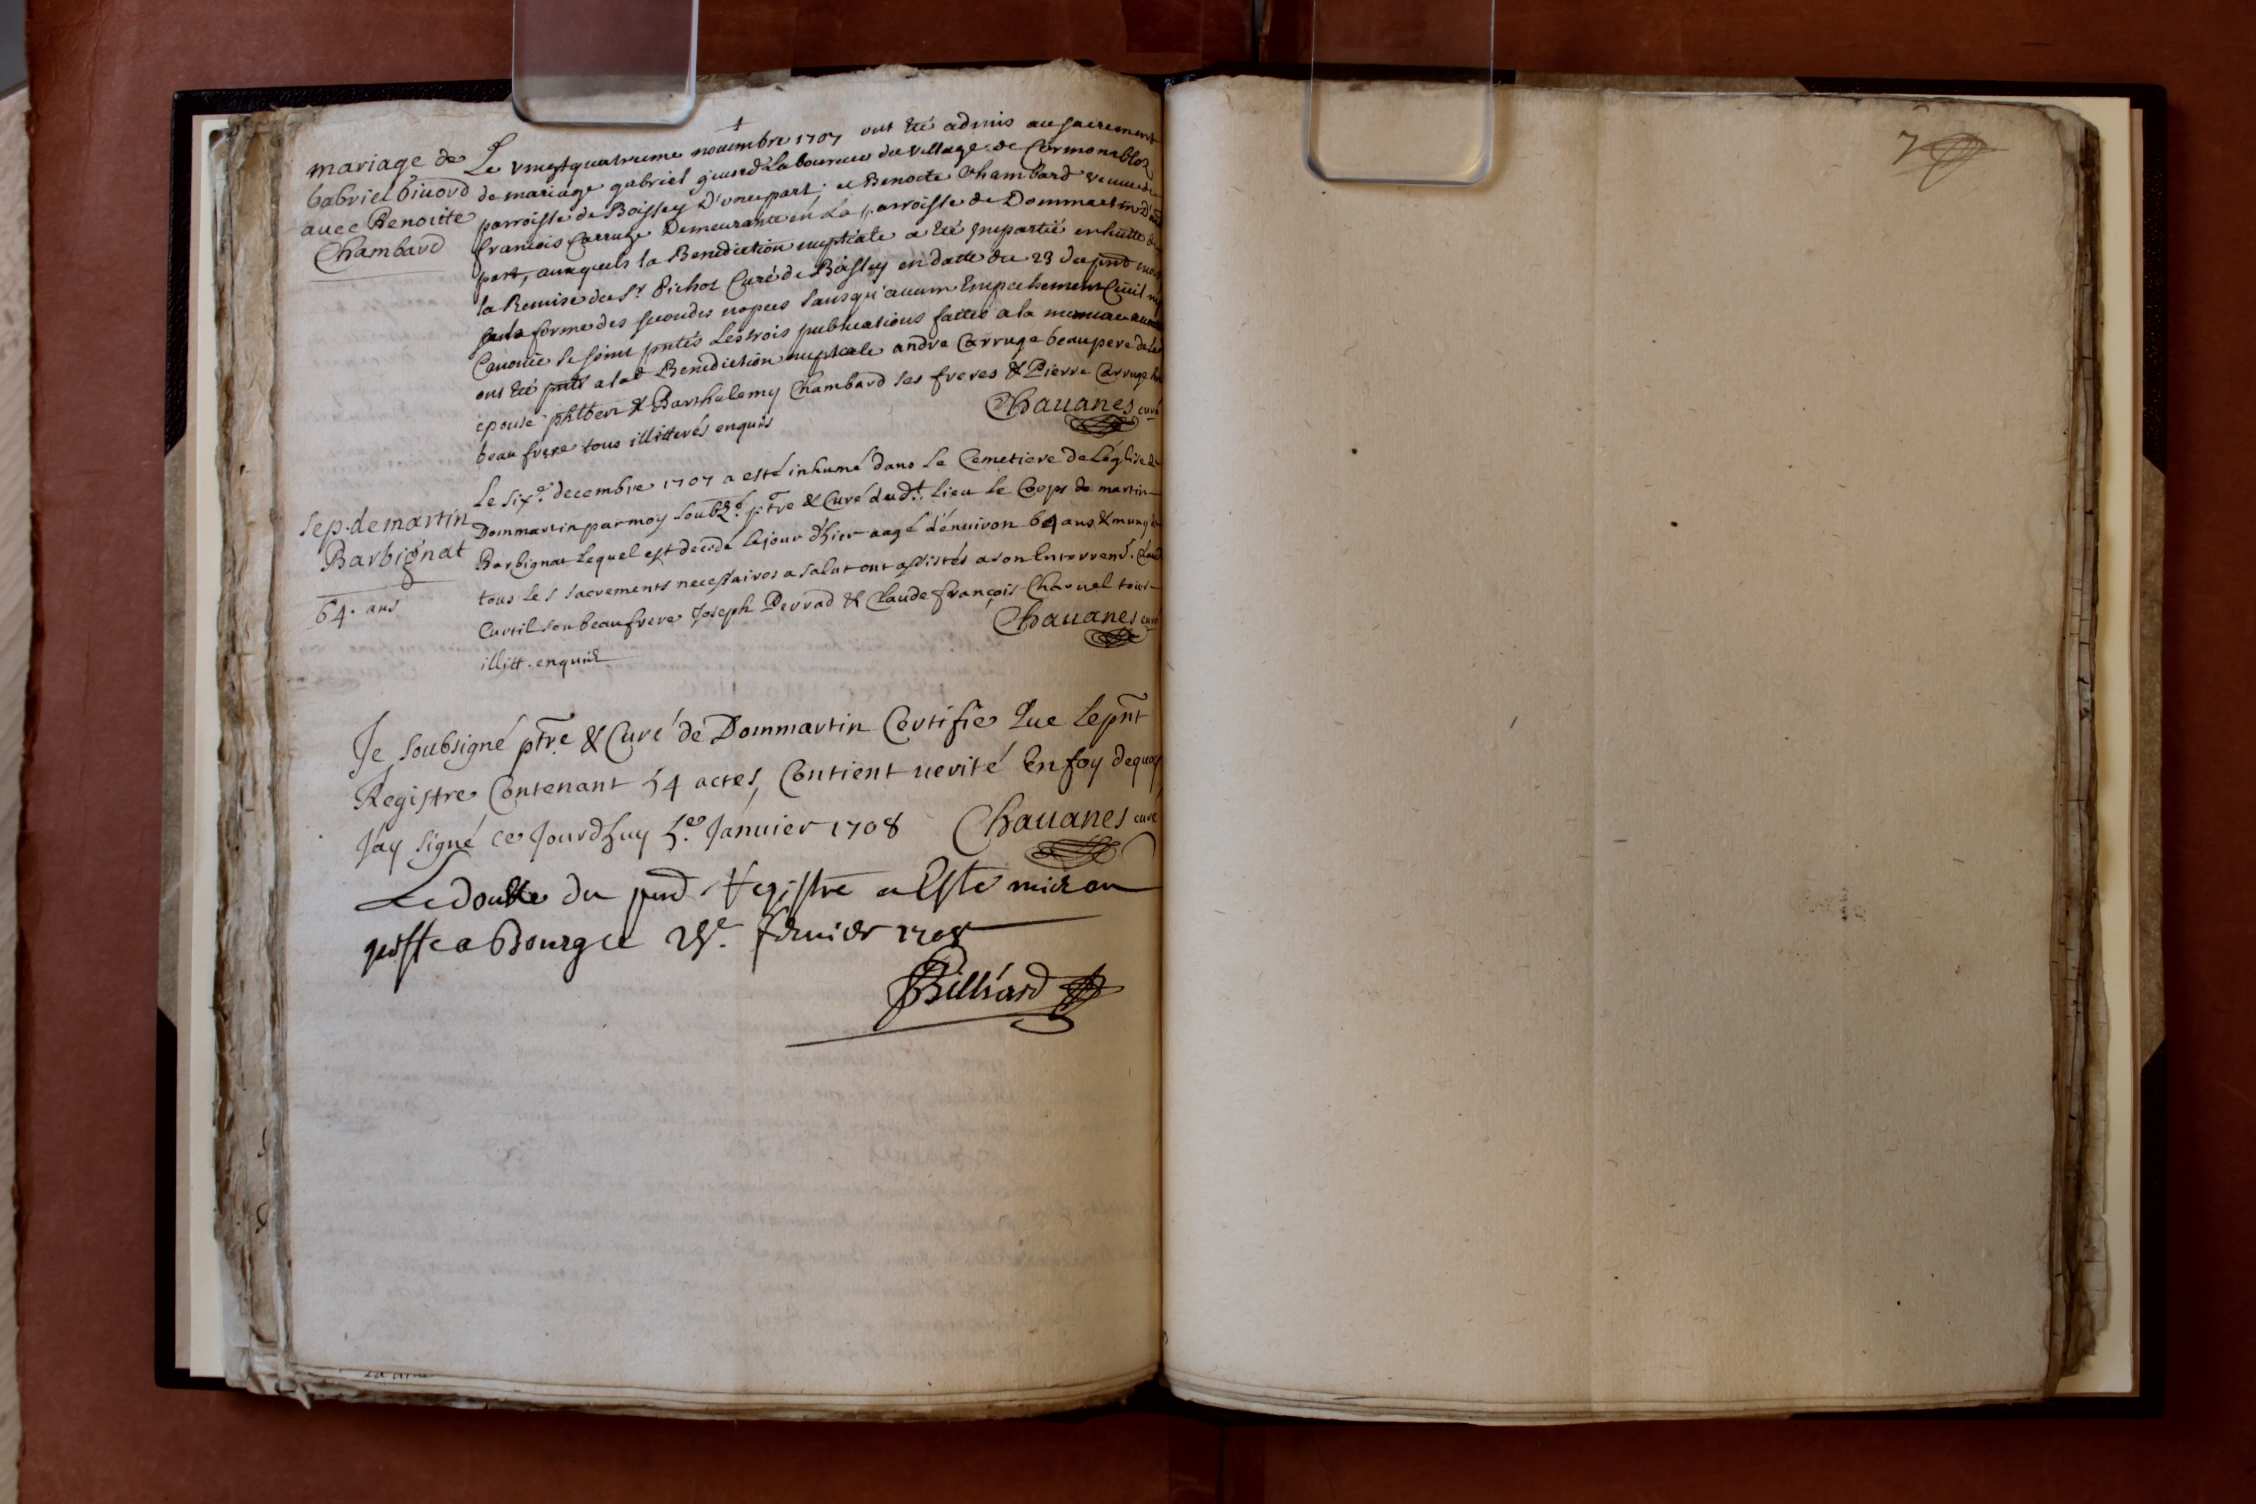 mariage de
Gabriel Giuord
auec Benoite
Chambard
Le vingt quatrieme nouembre 1707 ont été admis au sacrement
de mariage gabriel giuord Laboureur du village de Cormonable
parroisse de Boissey D'une part, et Benoite Chambard veuue de
francois Carruge Demeurante en La parroisse de Dommartin D'autre
part, auxquels la Benediction nuptiale a été impartie en suitte de
la Remise du Sr Pichot Curé de Boissey en datte du 23 du pnt mois
forme des secondes nopces sans qu'aucun Empechement Ciuil
Canonic se soint pntés Les trois publications faittes a la
ont été pnts a lad Benediction nuptiale andre Carruge beaupere de
epouse philbert & Barthelemy Chambard ses freres & Pierre Carruge
beau frere tous illitterés enquis
Chauanes curé
sep. de martin
Barbignat
64. ans
Le sixe. decembre 1707 a esté inhumé dans le Cemetiere de L'église de
Dommartin par moy soubzé. ptre & Curé dudt. lieu le Corps de martin
Barbignat Lequel est decedé le jour d'hier aagé d'enuiron 64 ans & muny de
tous les sacrements necessaires a salut ont assistés a son Enterremt.
Curtil son beaufrere Joseph Perrad & Claude françois Charuel tous
illitt. enquis
Chauanes curé
Je soubsigné ptre & Curé de Dommartin Certifie Que le pnt
Registre Contenant 54 actes, Contient uerité En foy dequoy
J'ay signé ce Jourdhuy 5e. Januier 1708 Chauanes curé
Le double du pnt Registre a Esté mis au
greffe a Bourg le feurier 1708
Billiard
7